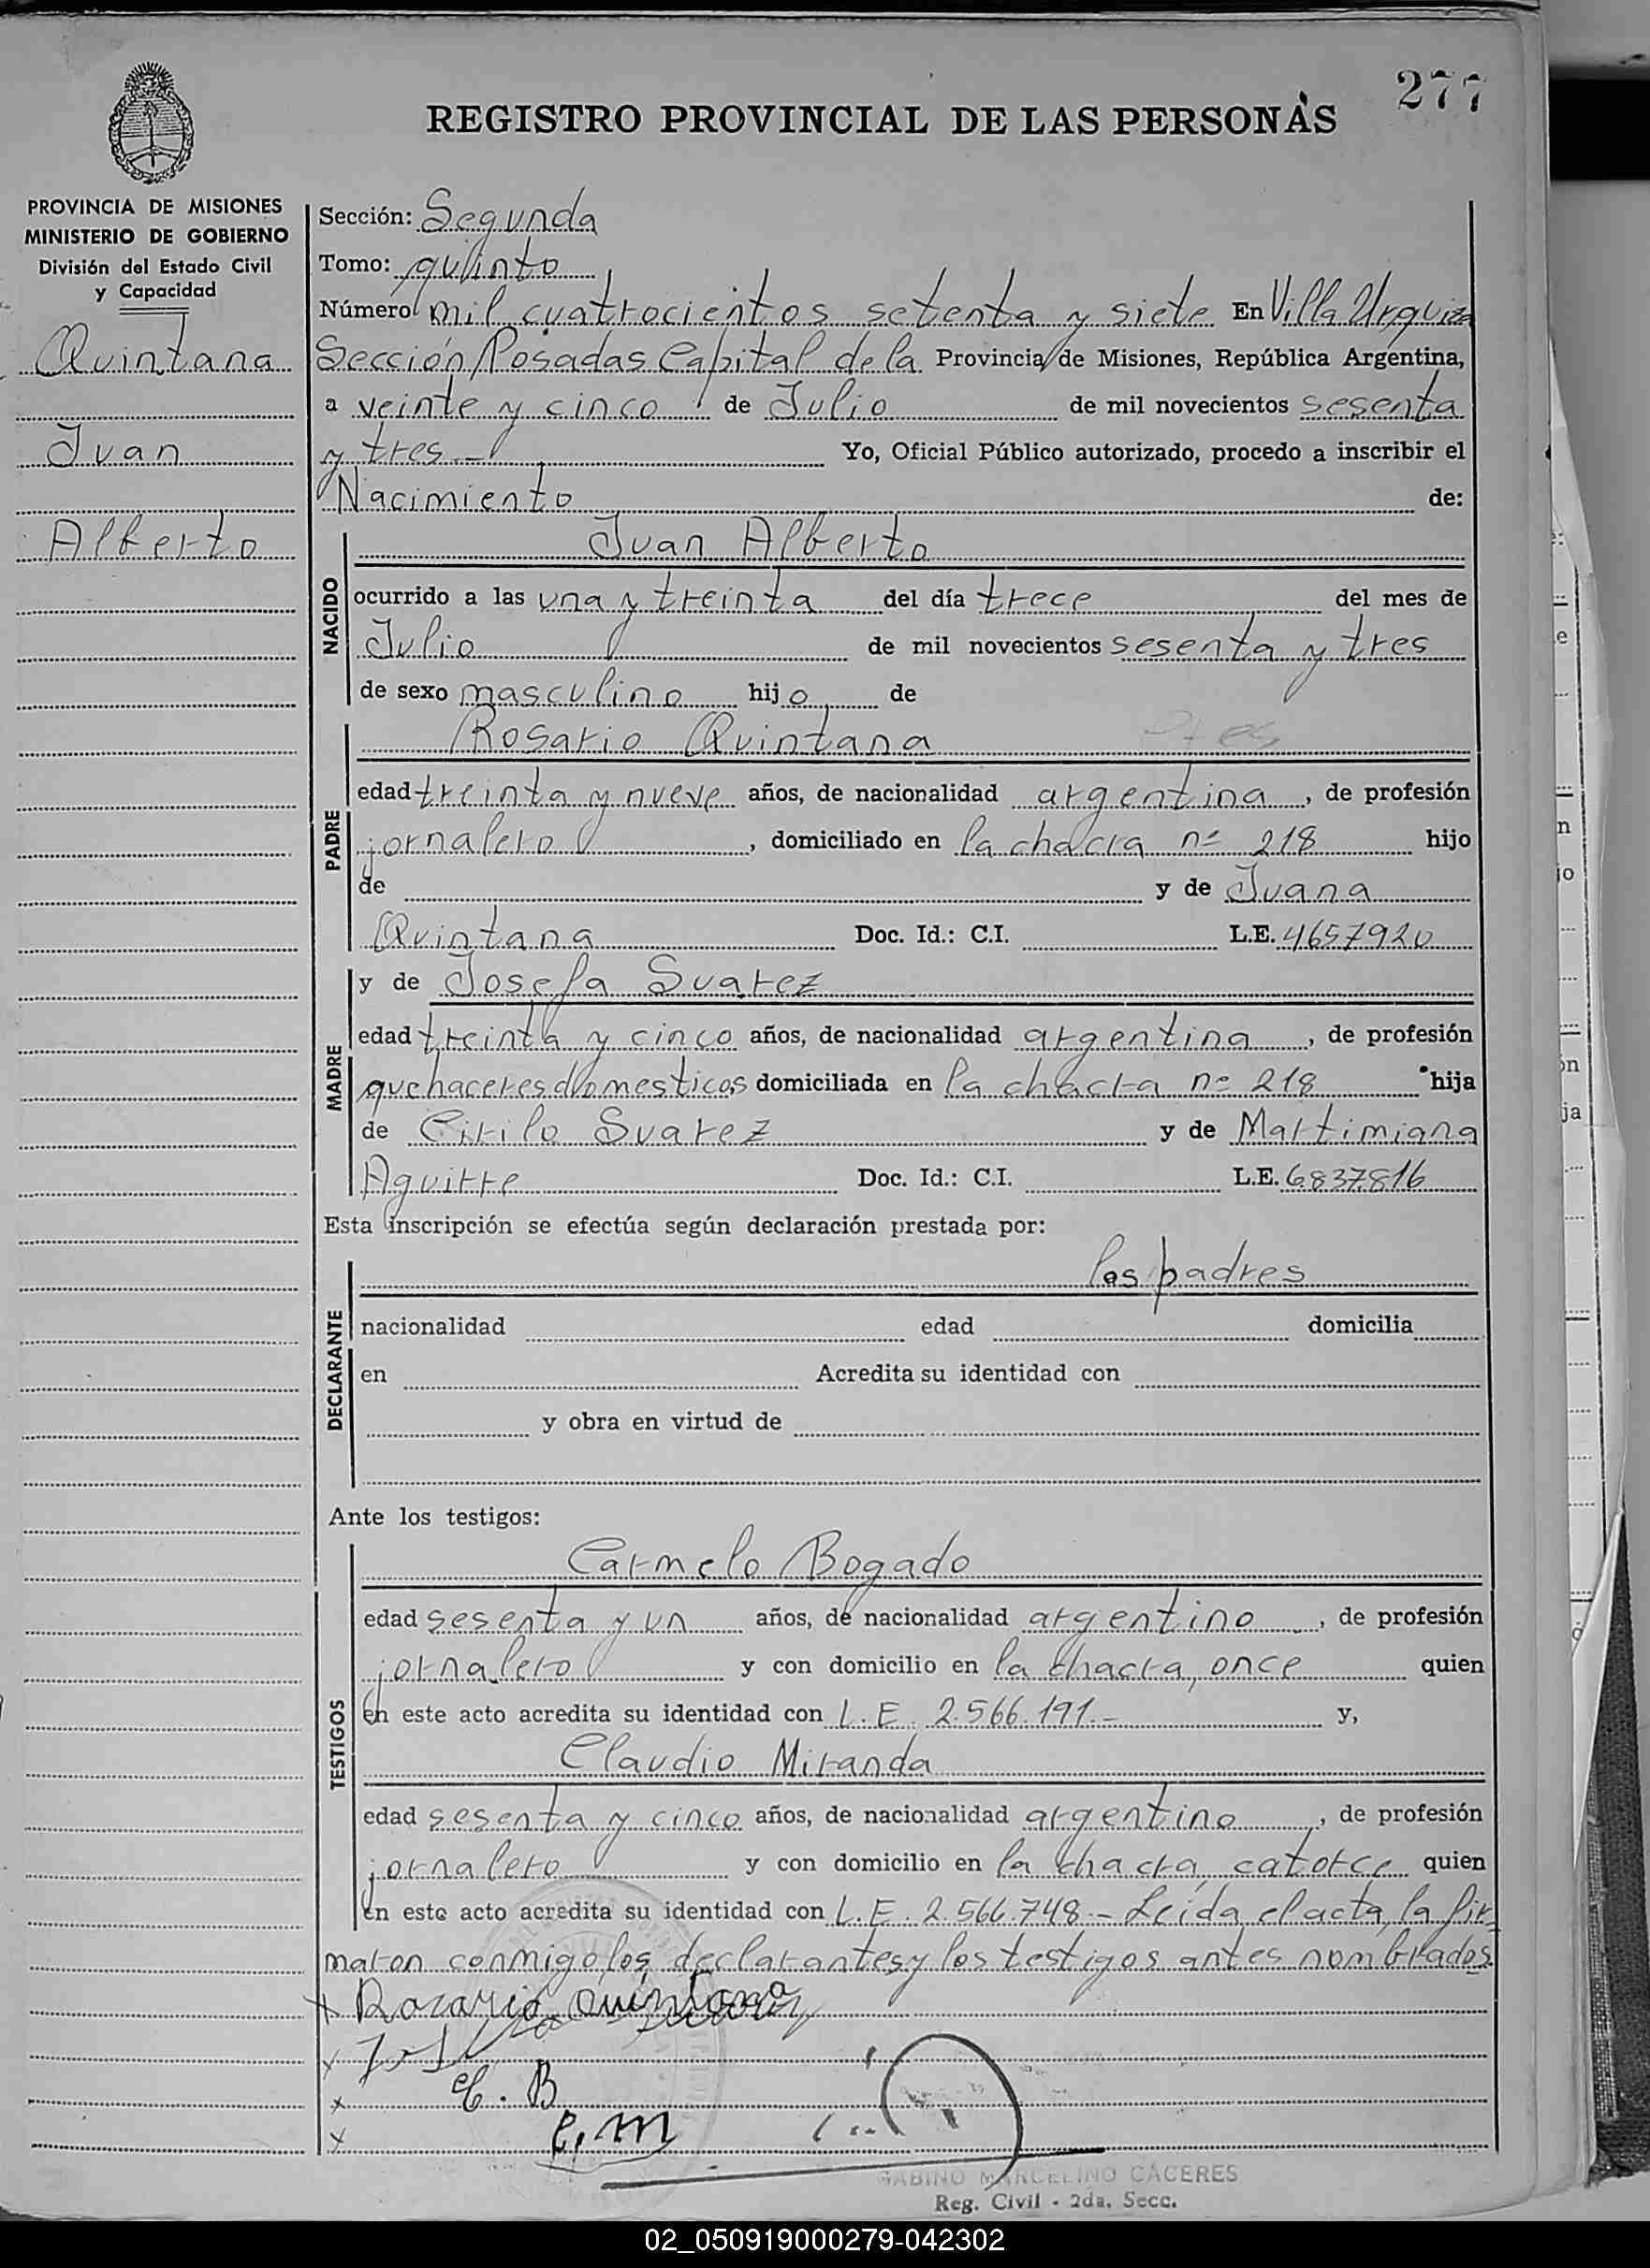 277
REGISTRO PROVINCIAL DE LAS PERSONAS
PROVINCIA DE MISIONES
MINISTERIO DE GOBIERNO
División del Estado Civil
y Capacidad
Quintana
Juan
Alberto
Sección: Segunda
Tomo: quinto
Número mil cuatrocientos setenta y siete En Villa Urquiza
Sección Posadas Capital de la Provincia de Misiones, República Argentina,
a veinte y cinco de Julio de mil novecientos sesenta
y tres.- Yo, Oficial Público autorizado, procedo a inscribir el
Nacimiento de:
NACIDO
Juan Alberto
ocurrido a las una y treinta del día trece del mes de
Julio de mil novecientos sesenta y tres
de sexo masculino hijo de
PADRE
Rosario Quintana
edad treinta y nueve años, de nacionalidad argentina, de profesión
jornalero, domiciliado en la chacra nº 218 hijo
de y de Juana
Quintana Doc. Id.: C.I. L.E. 4657920
MADRE
y de Josefa Suarez
edad treinta y cinco años, de nacionalidad argentina, de profesión
quehaceres domesticos domiciliada en la chacra nº 218 hija
de Cirilo Suarez y de Martimiana
Aguirre Doc. Id.: C.I. L.E. 6837816
Esta inscripción se efectúa según declaración prestada por:
DECLARANTE
los padres
nacionalidad edad domicilia
en Acredita su identidad con
y obra en virtud de
Ante los testigos:
TESTIGOS
Carmelo Bogado
edad sesenta y un años, de nacionalidad argentino, de profesión
jornalero y con domicilio en la chacra, once quien
en este acto acredita su identidad con L.E. 2.566.191.- y,
Claudio Miranda
edad sesenta y cinco años, de nacionalidad argentino, de profesión
jornalero y con domicilio en la chacra, catorce quien
en este acto acredita su identidad con L.E. 2.566.748.- Leída el acta, la fir
maron conmigo, los declarantes y los testigos antes nombrados
x Rozario Quintana
x
x C. B
x C. M
GABINO MARCELINO CACERES
Reg. Civil - 2da. Secc.
02_050919000279-042302